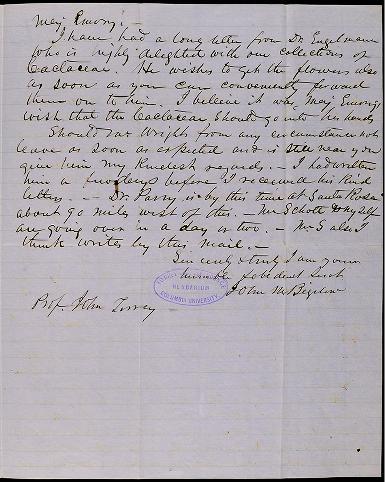 Maj Emory: —
I have had a long letter from Dr. Engelmann
who is highly delighted with our collections of
Cactaceae. He wishes to get the flowers also
as soon as you can conveniently forward
them on to him. I believe it was Maj Emorys
wish that the Cactaceae should go into his hands
Should Mr Wright from any circumstance not
leave as soon as expected and is still near you
give him my kindest regards. — I had written
him a before I received his kind
letters. — — Dr. Parry is by this time at Santa Rosa
about 90 miles west of this. — Mr Schott & myself
are going over in a day or two. — Mr S also I
think writes by this mail. —
Sincerely & truly I am yours
humble & obedient Servt
John M Bigelow
TORREY
HERBARIUM
COLUMBIA UNIVERSITY
Prof. John Torrey